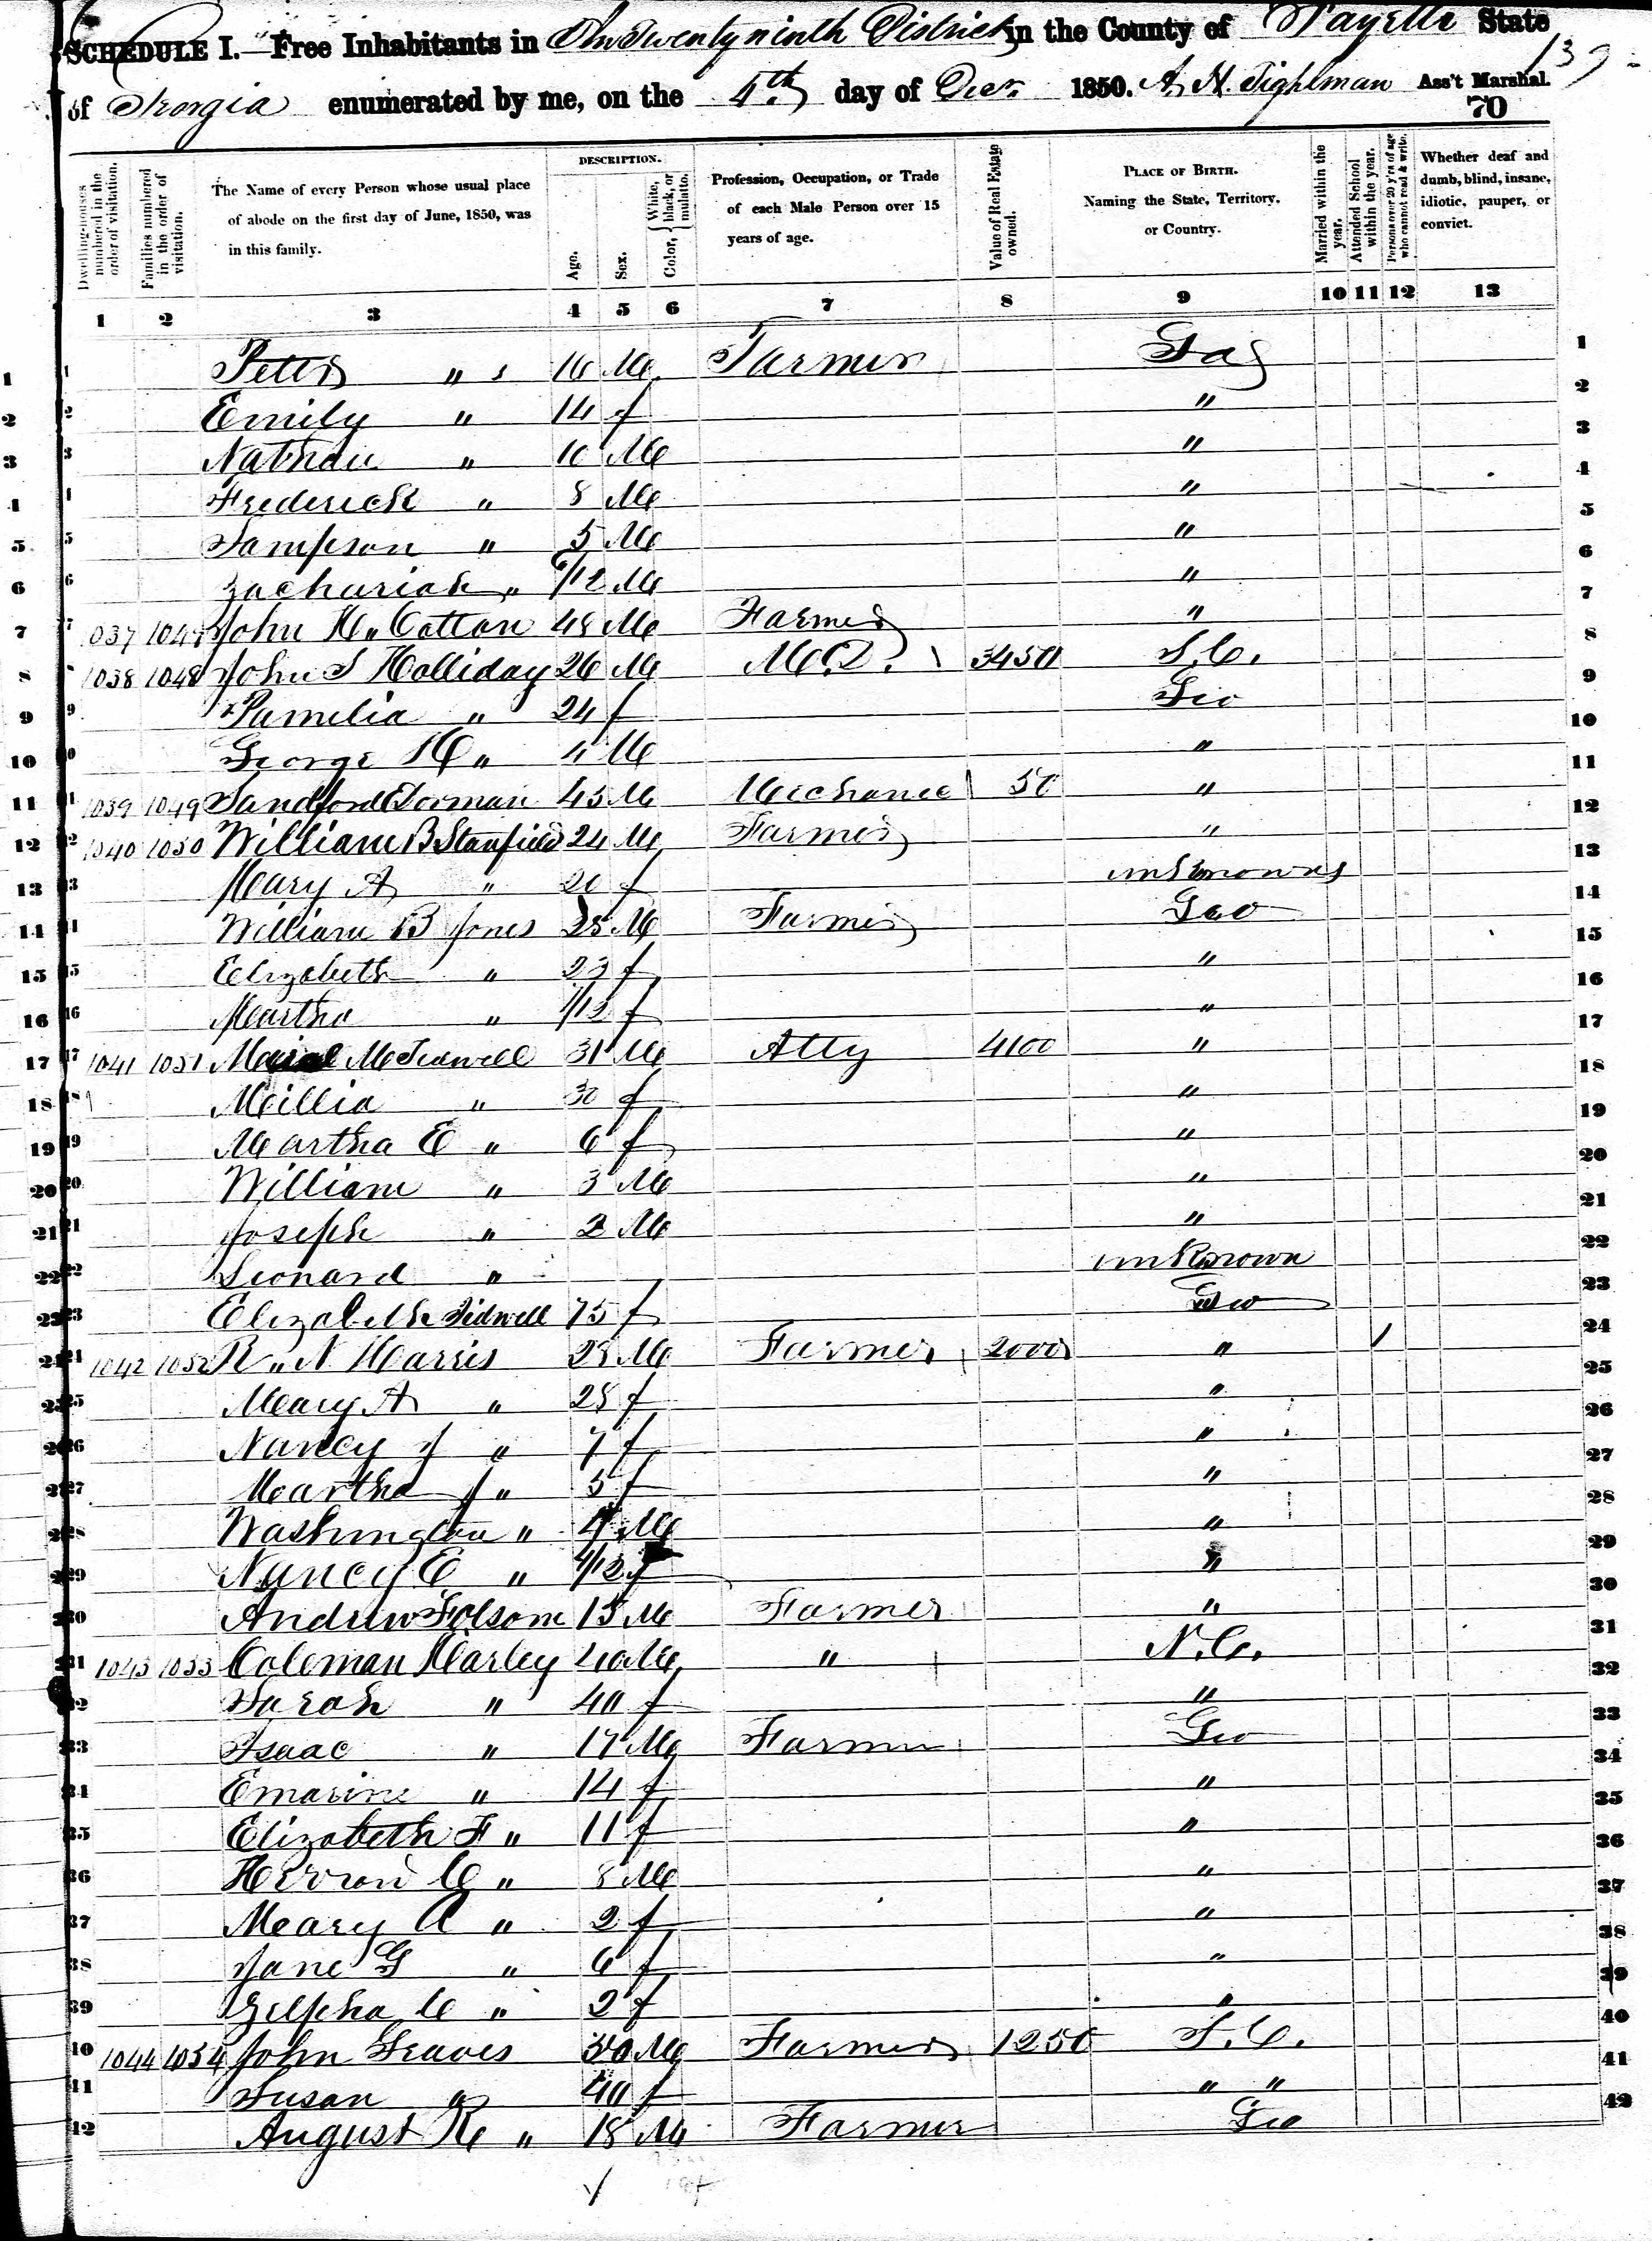 SCHEDULE I.—Free Inhabitants in The Twenty ninth District in the County of Fayette State
of Georgia enumerated by me, on the 4th day of Decr. 1850. A. H. Tighlman Ass't Marshal.
139
70
Dwelling-houses numbered in the order of visitation.
Families numbered in the order of visitation.
The Name of every Person whose usual place of abode on the first day of June, 1850, was in this family.
DESCRIPTION.
Age.
Sex.
Color, { White, black, or mulatto.
Profession, Occupation, or Trade of each Male Person over 15 years of age.
Value of Real Estate owned.
PLACE OF BIRTH. Naming the State, Territory, or Country.
Married within the year.
Attended School within the year.
Persons over 20 y'rs of age who cannot read & write.
Whether deaf and dumb, blind, insane, idiotic, pauper, or convict.
1 2 3 4 5 6 7 8 9 10 11 12 13
1 " 16 M Farmer 1
2 Emily " 14 f " 2
3 Nathan " 10 M " 3
4 Frederick " 8 M " 4
5 Sampson " 5 M " 5
6 Zachariah " /12 M " 6
7 1037 1047 John Cotton 48 M Farmer " 7
8 1038 1048 John S Holliday 26 M M.D. 3450 S.C. 8
9 Pamelia " 24 f Geo 9
10 George H " 4 M " 10
11 1039 1049 Sandford Dorman 45 M Mechanic 50 " 11
12 1040 1050 William B Stanfield 24 M Farmer " 12
13 Mary A " 20 f unknown 13
14 William B Jones 25 M Farmer Geo 14
15 Elizabeth " 23 f " 15
16 Martha " /12 f " 16
17 1041 1051 M Tidwell 31 M Atty 4100 " 17
18 Millia " 30 f " 18
19 Martha E " 6 f " 19
20 William " 3 M " 20
21 Joseph " 2 M " 21
22 Leonard " unknown 22
23 Elizabeth Tidwell 75 f Geo 23
24 1042 1052 R. N Harris 28 M Farmer 2000 " / 24
25 Mary A " 28 f " 25
26 Nancy J " 7 f " 26
27 Martha J " 5 f " 27
28 Washington " 4 M " 28
29 Nancy E " /12 f " 29
30 Andrew Folsom 15 M Farmer " 30
31 1043 1053 Coleman Harley 40 M " N.C. 31
32 Sarah " 40 f " 32
33 Isaac " 17 M Farmer Geo 33
34 Emarine " 14 f " 34
35 Elizabeth F " 11 f " 35
36 C " 8 M " 36
37 Mary A " 2 f " 37
38 Jane G " 6 f " 38
39 Zilpha C " 2 f " 39
40 1044 1054 John Graves 50 M Farmer 1250 S.C. 40
41 Susan " 40 f " " 41
42 August R " 18 M Farmer Geo 42